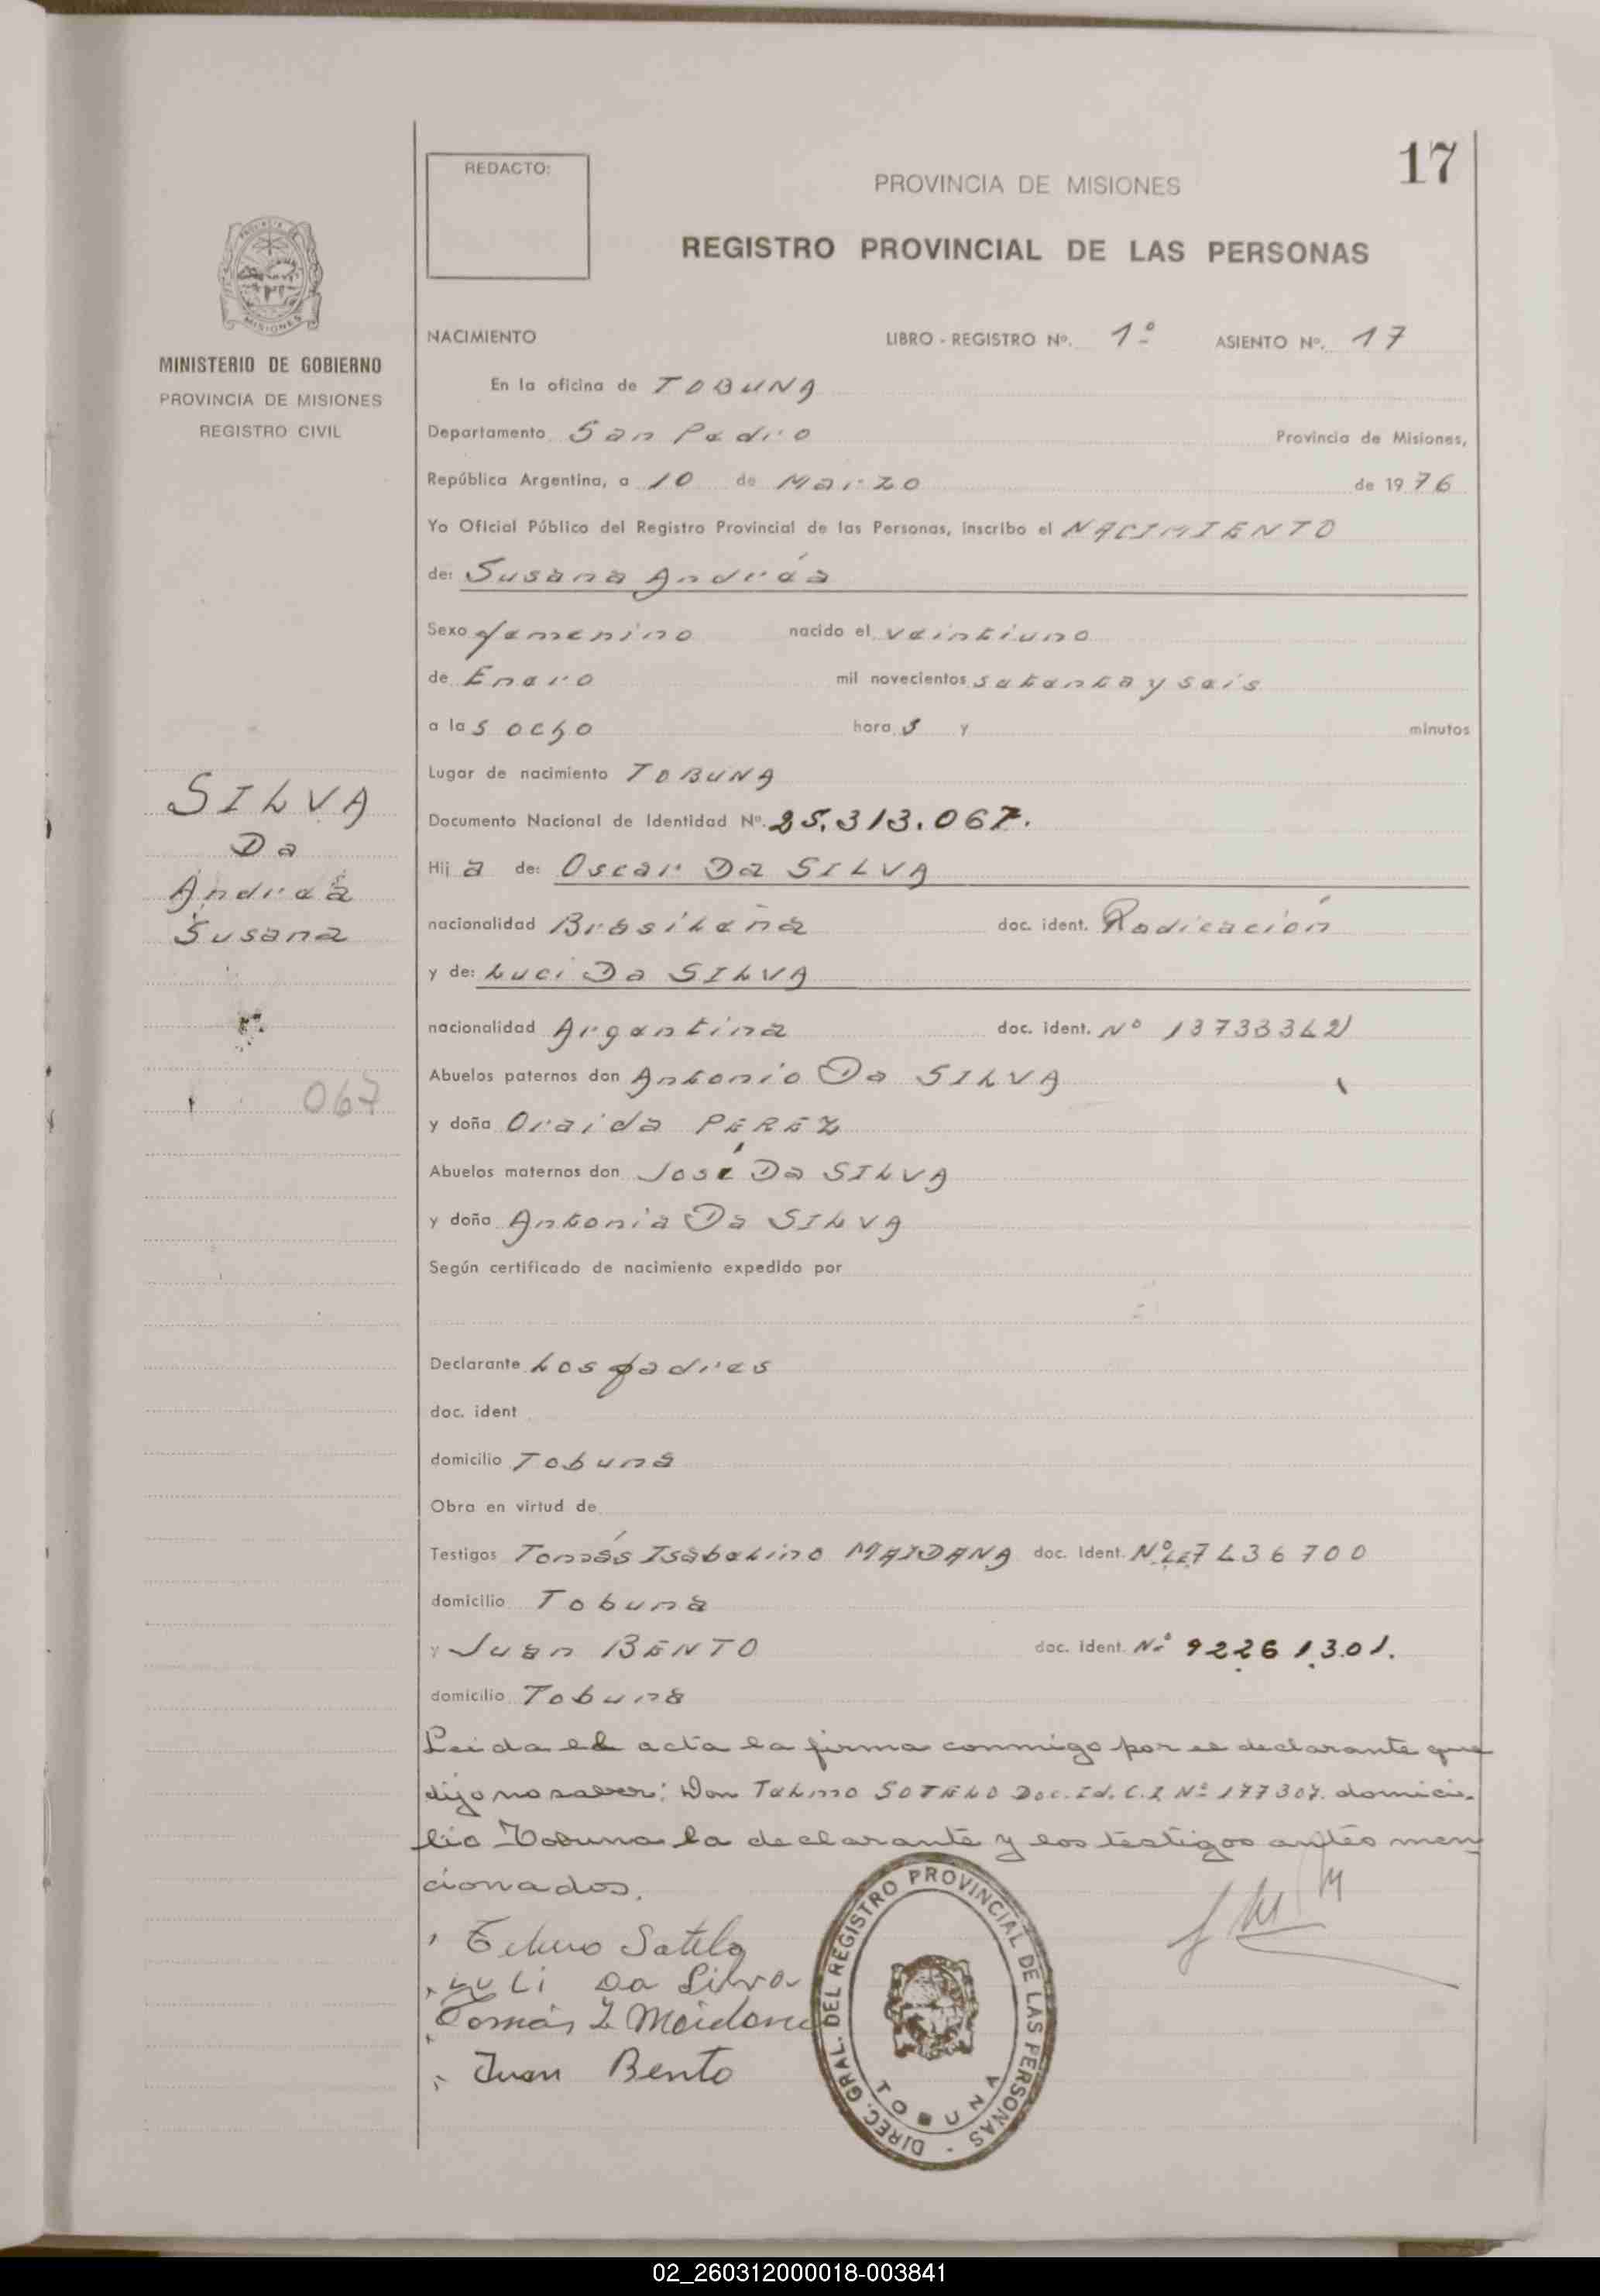 17
REDACTO:
PROVINCIA DE MISIONES
REGISTRO PROVINCIAL DE LAS PERSONAS
MISIONES
MINISTERIO DE GOBIERNO
PROVINCIA DE MISIONES
REGISTRO CIVIL
NACIMIENTO LIBRO - REGISTRO Nº. 1º ASIENTO Nº. 17
En la oficina de TOBUNA
Departamento San Pedro Provincia de Misiones,
República Argentina, a 10 de Marzo de 1976
Yo Oficial Público del Registro Provincial de las Personas, inscribo el NACIMIENTO
de: Susana Andréa
Sexo femenino nacido el veintiuno
de Enero mil novecientos setenta y seis
a las ocho hora s y minutos
Lugar de nacimiento TOBUNA
SILVA
Da
Andréa
Susana
Documento Nacional de Identidad Nº. 25.313.067.
Hija de: Oscar Da SILVA
nacionalidad Brasileña doc. ident. Radicación
y de: Luci Da SILVA
nacionalidad Argentina doc. ident. Nº 13733342
067
Abuelos paternos don Antonio Da SILVA
y doña Oraida PEREZ
Abuelos maternos don José Da SILVA
y doña Antonia Da SILVA
Según certificado de nacimiento expedido por
Declarante Los padres
doc. ident
domicilio Tobuna
Obra en virtud de
Testigos Tomás Isabelino MAIDANA doc. Ident. Nº 7436700
domicilio Tobuna
y Juan BENTO doc. ident. Nº 92261301.
domicilio Tobuna
Leida el acta la firma conmigo por el declarante que
dijo no saber: Don Telmo SOTELO Doc. Id. C.I. Nº 177307. domici-
lio Tobuna la declarante y los testigos antes men
cionados.
Telmo Sotelo
Luci Da Silva
Tomás I Maidana
Juan Bento
DIREC. GRAL. DEL REGISTRO PROVINCIAL DE LAS PERSONAS -
TOBUNA
02_260312000018-003841